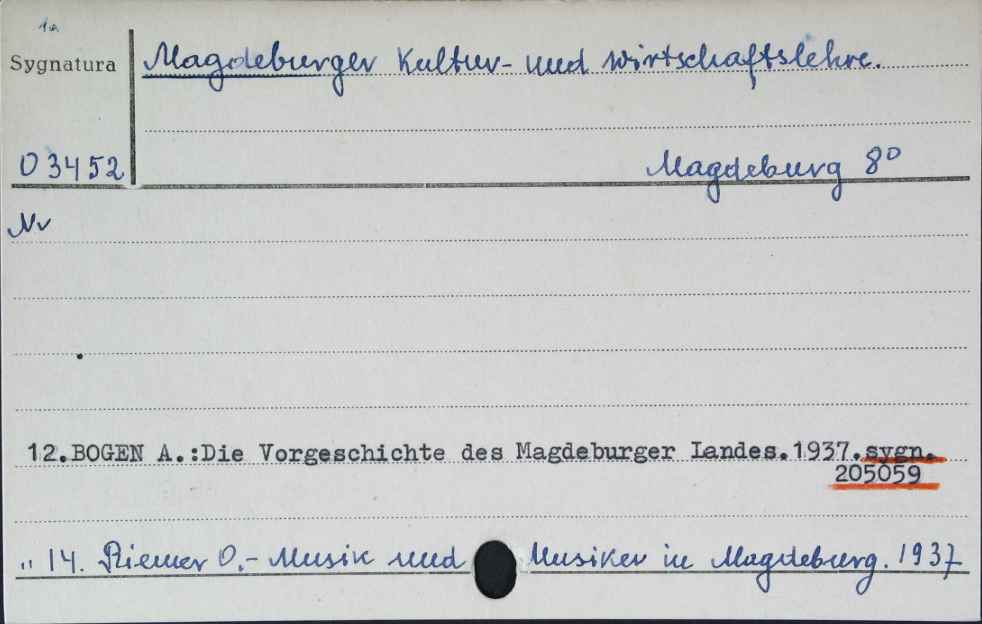 1a
Sygnatura
Magdeburger Kultur- und Wirtschaftslehre.
03452
Magdeburg 8°
Nr
12.BOGEN A.:Die Vorgeschichte des Magdeburger Landes.1937.sygn.
205059
" 14. Riemer O.- Musik und Musiker in Magdeburg. 1937